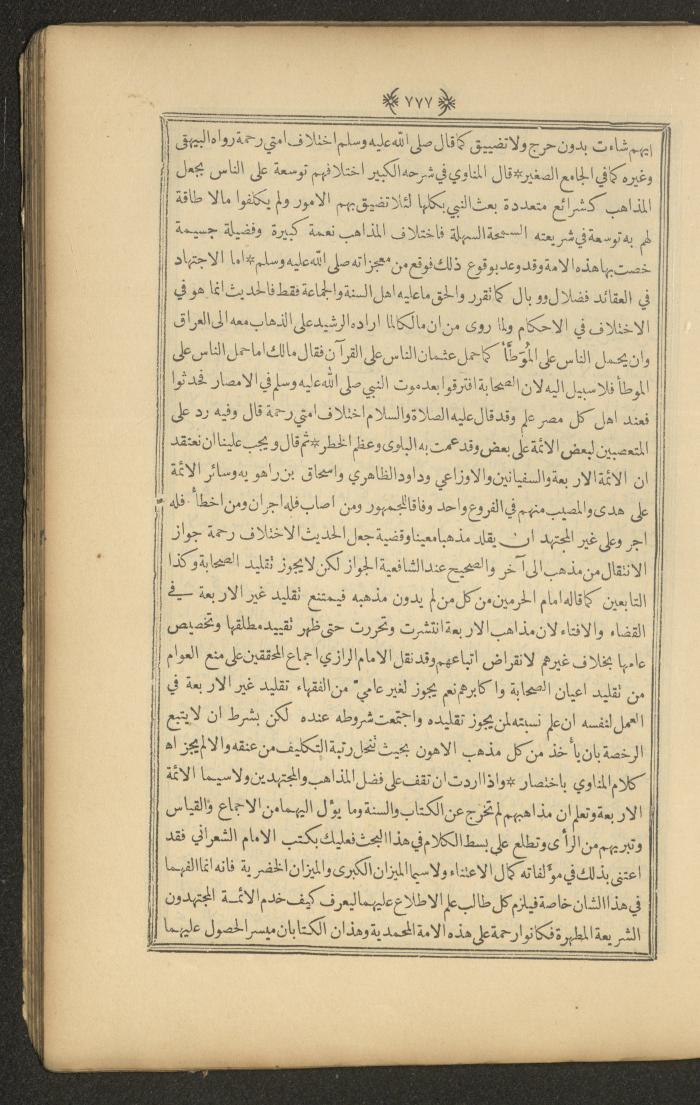 ٧٧٧
ايهم شاءت بدون حرج ولا تضييق كما قال صلى الله عليه وسلم اختلاف امتي رحمة رواه البيهقي
وغيره كما في الجامع الصغير * قال المناوي في شرحه الكبير اختلافهم توسعة على الناس يجعل
المذاهب كشرائع متعددة بعث النبي بكلها لئلا تضيق بهم الامور ولم يكلفوا مالا طاقة
لهم به توسعة في شريعته السمحة السهلة فاختلاف المذاهب نعمة كبيرة وفضيلة جسيمة
خصت بها هذه الامة وقد وعد بوقوع ذلك فوقع من معجزاته صلى الله عليه وسلم * اما الاجتهاد
في العقائد فضلال ووبال كما تقرر والحق ما عليه اهل السنة والجماعة فقط فالحديث انما هو في
الاختلاف في الاحكام ولما روى من ان مالكا لما اراده الرشيد على الذهاب معه الى العراق
وان يحمل الناس على المُوَطَّأ كما حمل عثمان الناس على القرآن فقال مالك اما حمل الناس على
الموطأ فلا سبيل اليه لان الصحابة افترقوا بعد موت النبي صلى الله عليه وسلم في الامصار فحدثوا
فعند اهل كل مصر علم وقد قال عليه الصلاة والسلام اختلاف امتي رحمة قال وفيه رد على
المتعصبين لبعض الائمة على بعض وقد عمت به البلوى وعظم الخطر * ثم قال ويجب علينا ان نعتقد
ان الائمة الاربعة والسفيانين والاوزاعي وداود الظاهري واسحاق بن راهويه وسائر الائمة
على هدى والمصيب منهم في الفروع واحد وفاقا للجمهور ومن اصاب فله اجران ومن اخطأ فله
اجر وعلى غير المجتهد ان يقلد مذهبا معينا وقضية جعل الحديث الاختلاف رحمة جواز
الانتقال من مذهب الى آخر والصحيح عند الشافعية الجواز لكن لا يجوز تقليد الصحابة وكذا
التابعين كما قاله امام الحرمين من كل من لم يدون مذهبه فيمتنع تقليد غير الاربعة في
القضاء والافتاء لان مذاهب الاربعة انتشرت وتحررت حتى ظهر تقييد مطلقها وتخصيص
عامها بخلاف غيرهم لانقراض اتباعهم وقد نقل الامام الرازي اجماع المحققين على منع العوام
من تقليد اعيان الصحابة واكابرهم نعم يجوز لغير عامي من الفقهاء تقليد غير الاربعة في
العمل لنفسه ان علم نسبته لمن يجوز تقليده واجتمعت شروطه عنده لكن بشرط ان لا يتبع
الرخصة بان يأخذ من كل مذهب الاهون بحيث تنحل رتبة التكليف من عنقه والا لم يجز اه
كلام المناوي باختصار * واذا اردت ان تقف على فضل المذاهب والمجتهدين ولا سيما الائمة
الاربعة وتعلم ان مذاهبهم لم تخرج عن الكتاب والسنة وما يؤل اليهما من الاجماع والقياس
وتبريهم من الرأى وتطلع على بسط الكلام في هذا البحث فعليك بكتب الامام الشعراني فقد
اعتنى بذلك في مؤلفاته كمال الاعتناء ولا سيما الميزان الكبرى والميزان الخضرية فانه انما الفهما
في هذا الشان خاصة فيلزم كل طالب علم الاطلاع عليهما ليعرف كيف خدم الائمة المجتهدون
الشريعة المطهرة فكانوا رحمة على هذه الامة المحمدية وهذان الكتابان ميسر الحصول عليهما